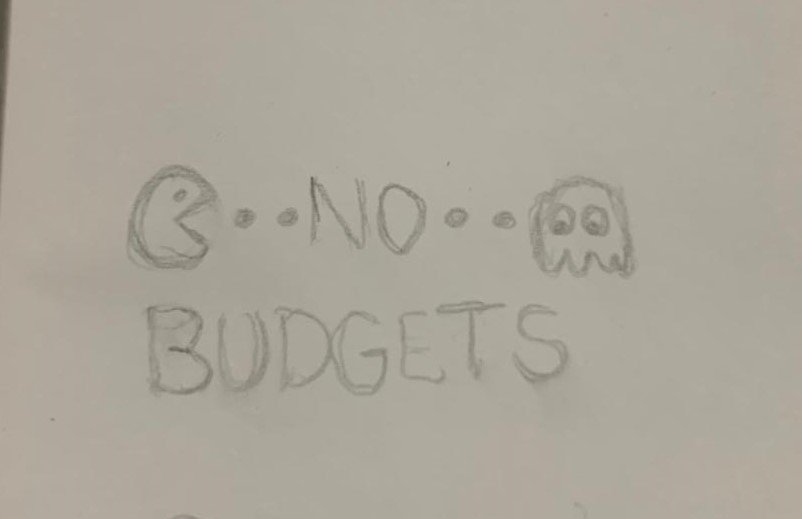 NO
BUDGETS